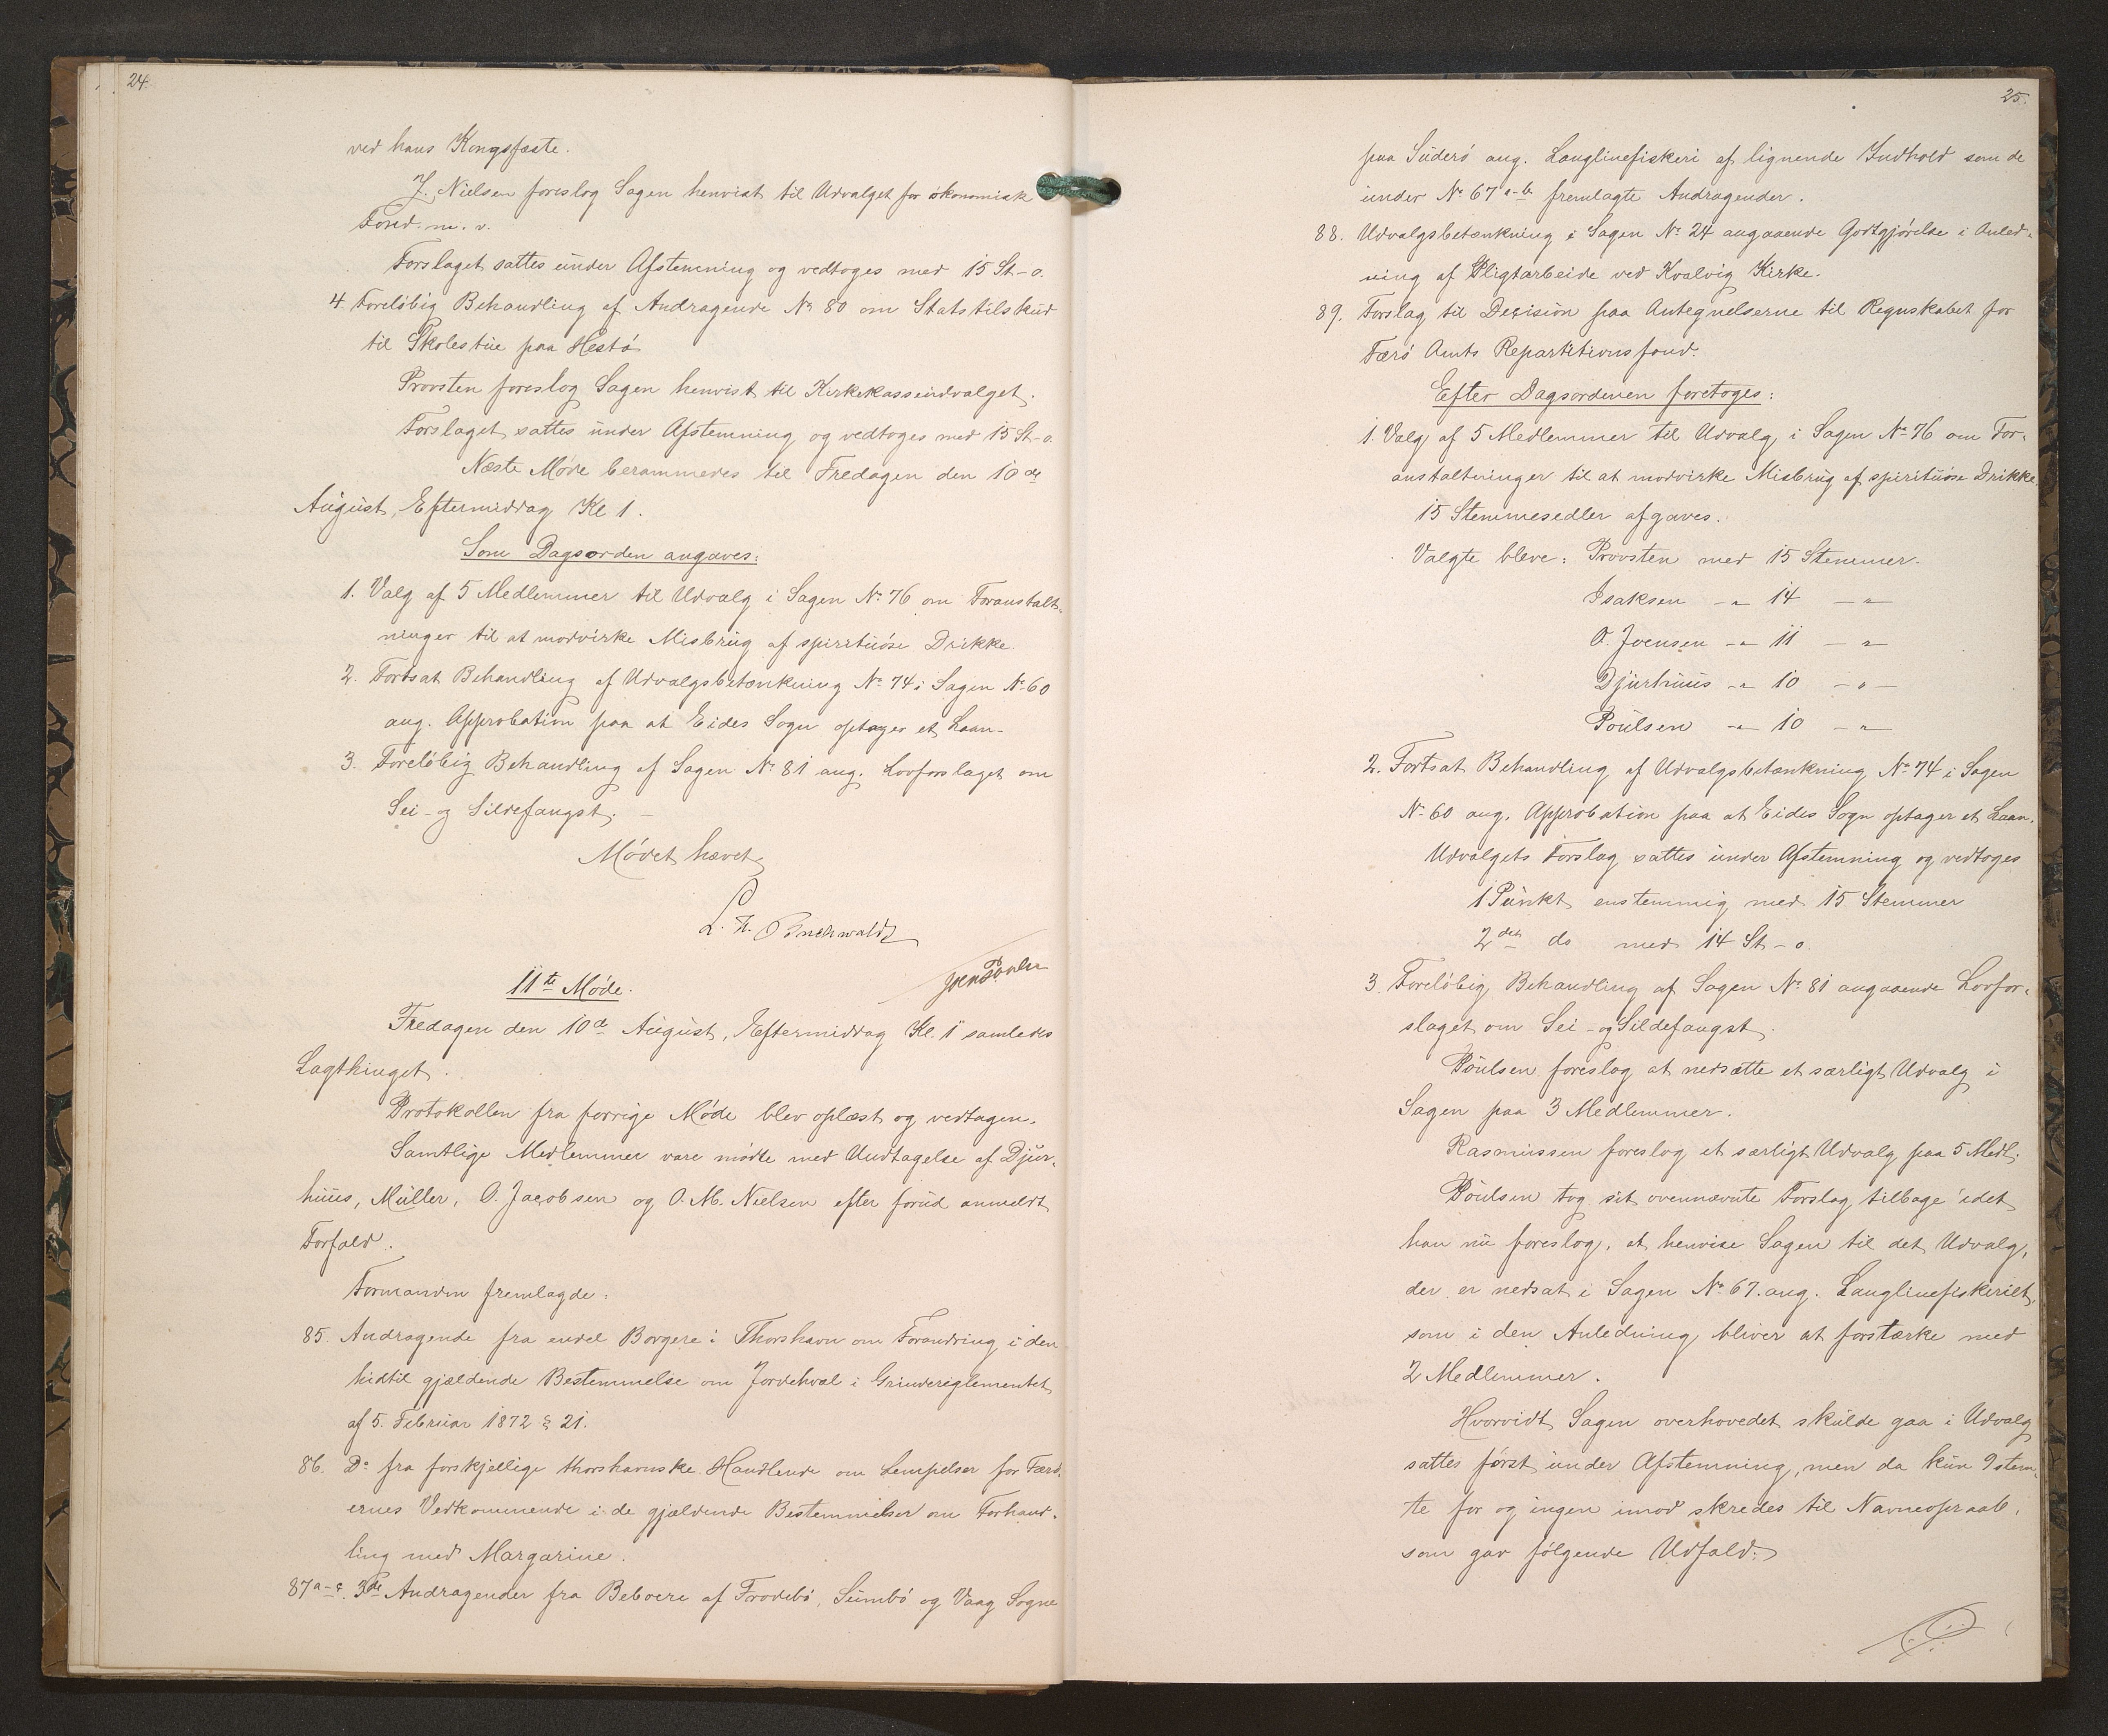 24.
ved hans Kongsfæste.
J. Nielsen foreslog Sagen henvist til Udvalget for økonomisk
Fond. m. v.
Forslaget sattes under Afstemning og vedtoges med 15 St-0.
4. Foreløbig Behandling af Andragende № 80 om Statstilskud
til Skolestue paa Hestø
Provsten foreslog Sagen henvist til Kirkekasseudvalget.
Forslaget sattes under Afstemning og vedtoges med 15 St-0.
Næste Møde berammedes til Fredagen den 10de
August, Eftermiddag Kl 1.
Som Dagsorden angaves:
1. Valg af 5 Medlemmer til Udvalg i Sagen № 76 om Foranstalt-
ninger til at modvirke Misbrug af spirituøse Drikke
2. Fortsat Behandling af Udvalgsbetænkning № 74 i Sagen № 60
ang. Approbation paa at Eides Sogn optager et Laan-
3. Foreløbig Behandling af Sagen № 81 ang. Lovforslaget om
Sei- og Sildefangst. -
Mødet hævet
L. F.
11te Møde.
Fredagen den 10de August, Eftermiddag Kl. 1 samledes
Lagthinget.
Protokollen fra forrige Møde blev oplæst og vedtagen.
Samtlige Medlemmer vare mødte med Undtagelse af Djur-
huus, Müller, O. Jacobsen og O. M. Nielsen efter forud anmeldt
Forfald.
Formanden fremlagde:
85. Andragende fra endel Borgere i Thorshavn om Forandring i den
hidtil gjældende Bestemmelse om Jordehval i Grindereglementet
af 5. Februar 1872 § 21.
86. Do fra forskjellige thorshavnske Handlende om Lempelser for Færø-
ernes Vedkommende i de gjældende Bestemmelser om Forhand-
ling med Margarine.
87 a-c. 3de Andragender fra Beboere af Frodebø, Sumbø og Vaag Sogne
25.
paa Suderø ang. Langlinefiskeri af lignende Indhold som de
under № 67 a-b fremlagte Andragender.
88. Udvalgsbetænkning i Sagen № 24 angaaende Godtgjørelse i Anled-
ning af Pligtarbeide ved Kvalvig Kirke.
89. Forslag til Decision paa Antegnelserne til Regnskabet for
Færø Amts Repartitionsfond.
Efter Dagsordenen foretoges:
1. Valg af 5 Medlemmer til Udvalg i Sagen № 76 om For-
anstaltninger til at modvirke Misbrug af spirituøse Drikke.
15 Stemmesedler afgaves.
Valgte bleve: Provsten med 15 Stemmer.
Isaksen -"- 14 -"-
O. Joensen -"- 11 -"-
Djurhuus -"- 10 -"-
Poulsen -"- 10 -"-
2. Fortsat Behandling af Udvalgsbetænkning № 74 i Sagen
№ 60 ang. Approbation paa at Eides Sogn optager et Laan.
Udvalgets Forslag sattes under Afstemning og vedtoges
1 Punkt enstemmig med 15 Stemmer
2det do med 14 St-0.
3. Foreløbig Behandling af Sagen № 81 angaaende Lovfor-
slaget om Sei- og Sildefangst.
Poulsen foreslog at nedsætte et særligt Udvalg i
Sagen paa 3 Medlemmer.
Rasmussen foreslog et særligt Udvalg paa 5 Medl.
Poulsen tog sit ovennævnte Forslag tilbage idet
han nu foreslog, at henvise Sagen til det Udvalg,
der er nedsat i Sagen № 67. ang. Langlinefiskeriet,
som i den Anledning bliver at forstærke med
2 Medlemmer.
Hvorvidt Sagen overhovedet skulde gaa i Udvalg
sattes først under Afstemning, men da kun 9 stem-
te for og ingen imod skredes til Navneopraab,
som gav følgende Udfald: